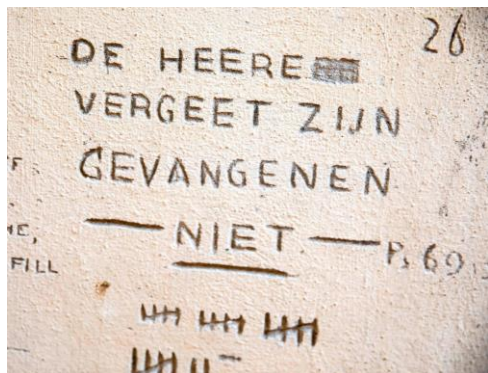 26
DE HEERE
VERGEET ZIJN
GEVANGENEN
NIET
P, 69
FILL